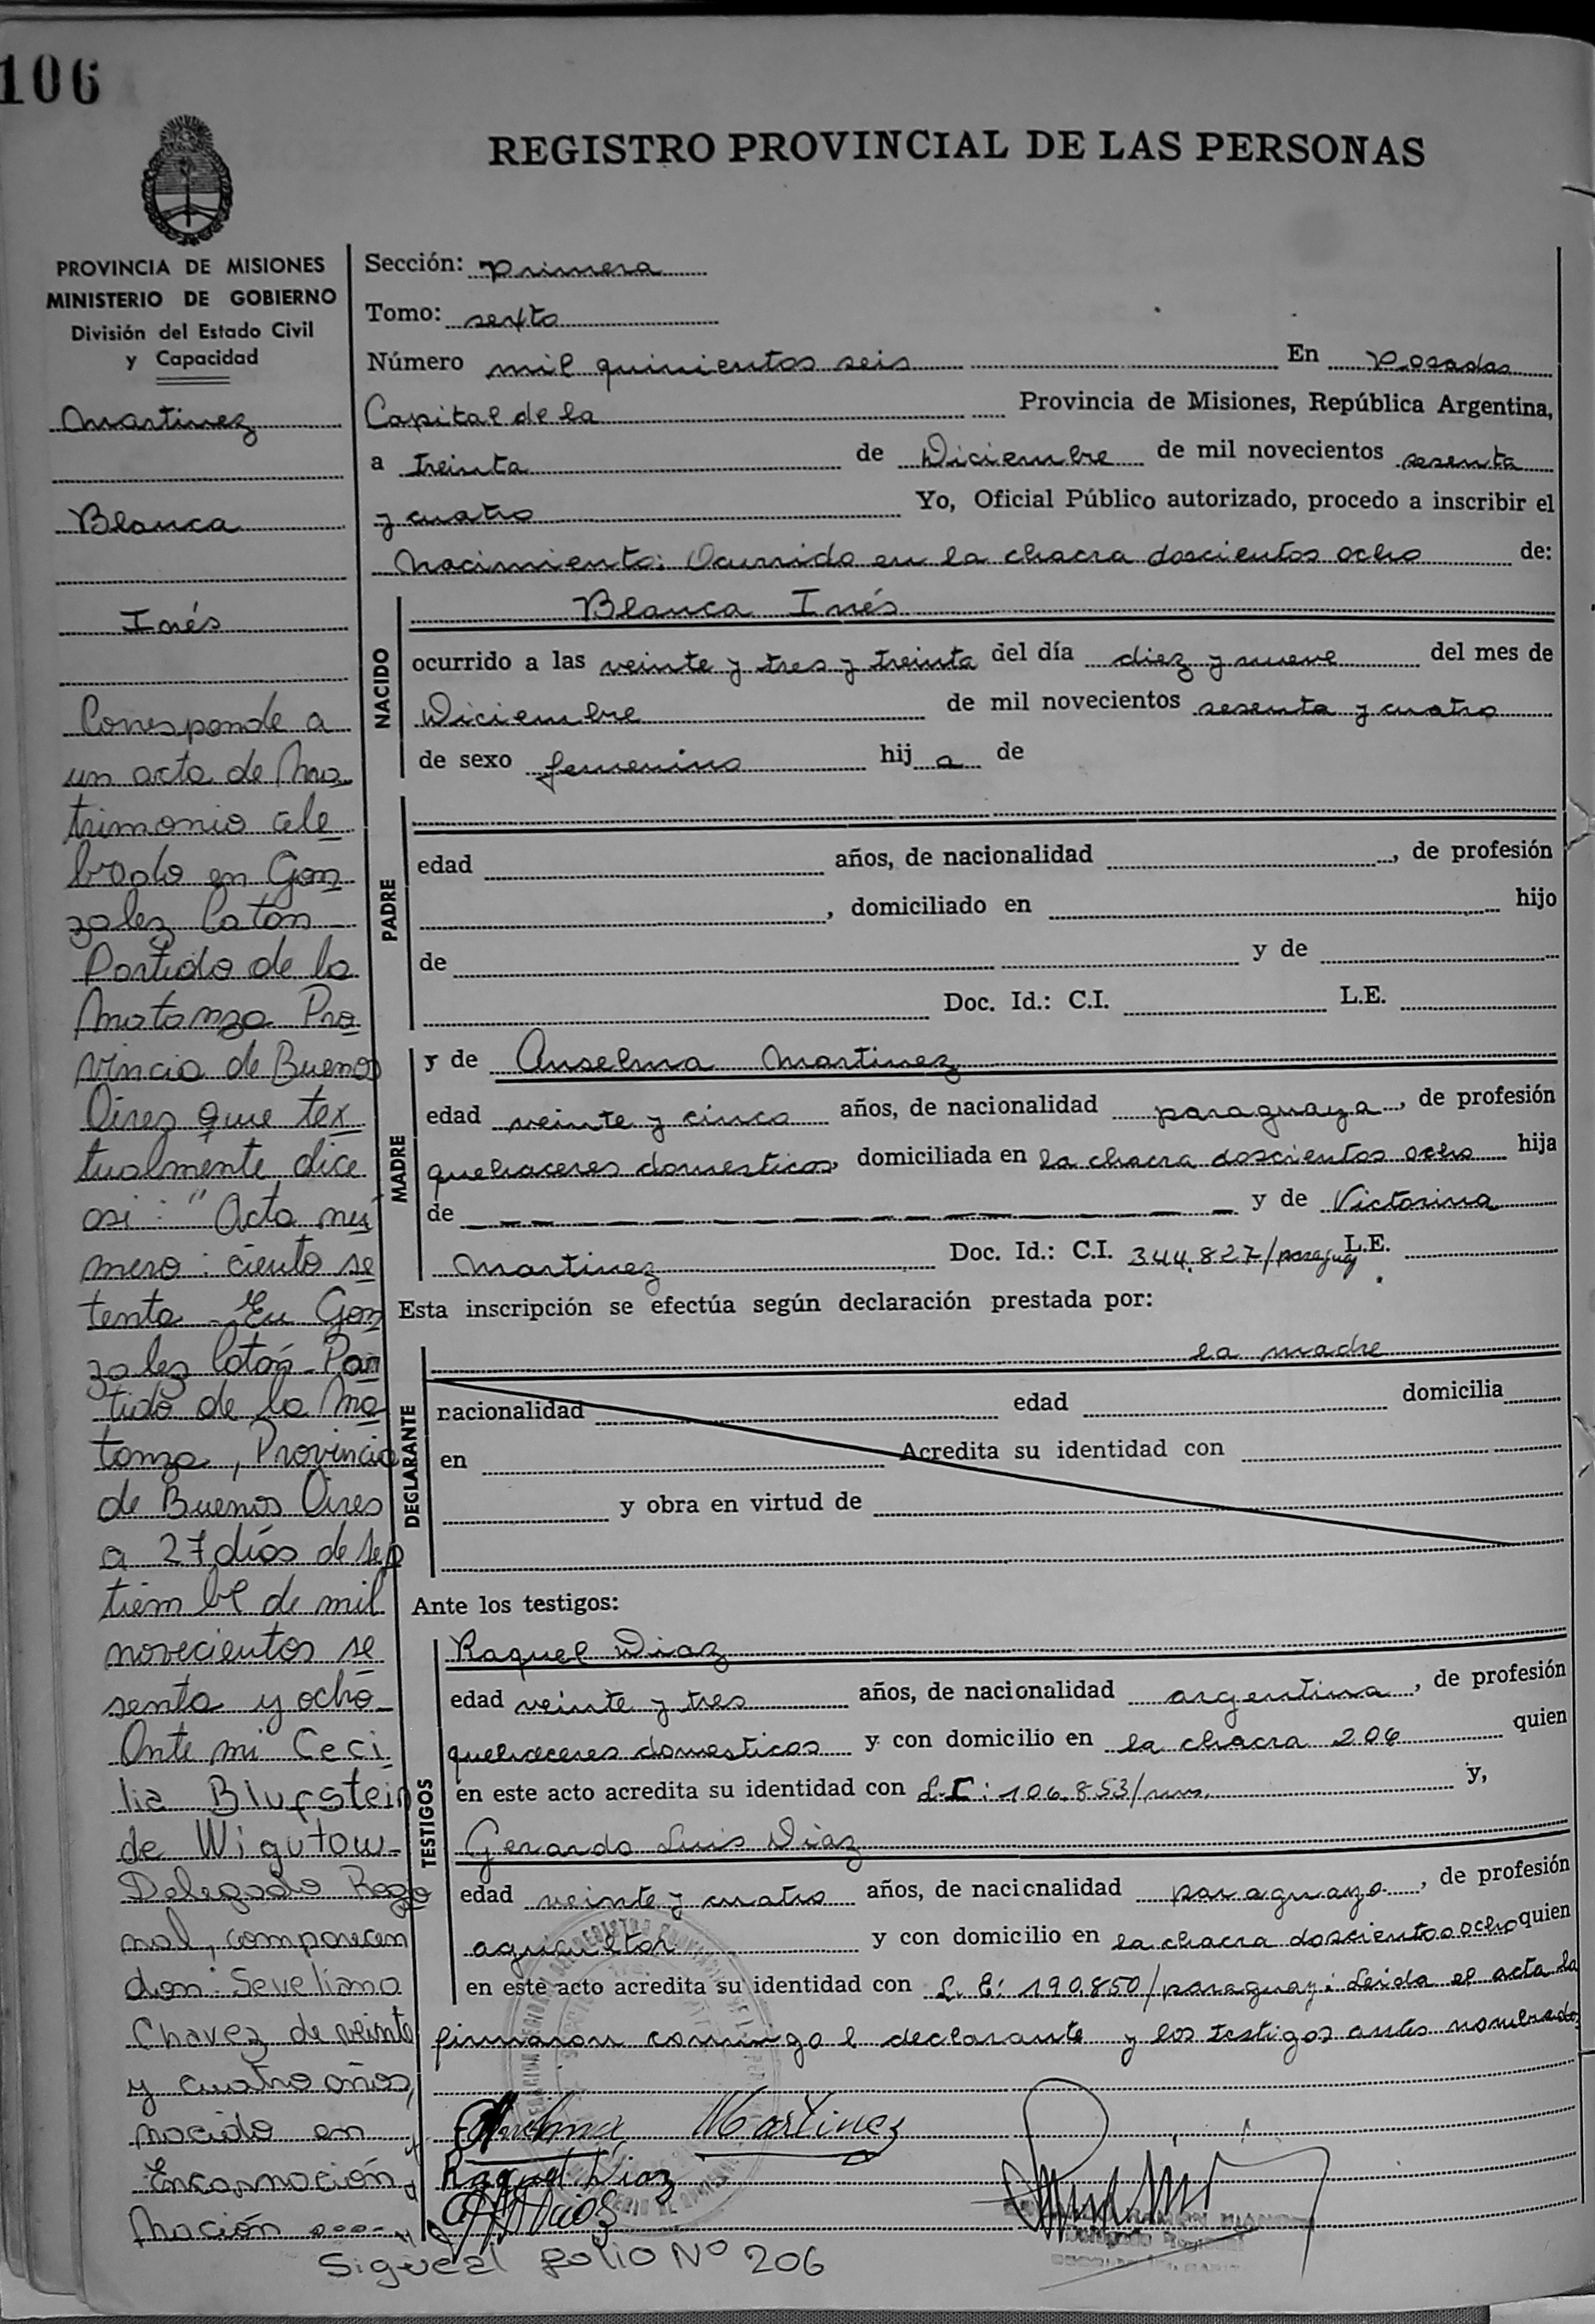 106
REGISTRO PROVINCIAL DE LAS PERSONAS
PROVINCIA DE MISIONES
MINISTERIO DE GOBIERNO
División del Estado Civil
y Capacidad
Martinez
Blanca
Inés
Corresponde a
un acta de Ma
trimonio cele
brado en Gon
zalez Catán
Partido de la
Matanza Pro
vincia de Buenos
Aires que tex
tualmente dice
asi: "Acta nú
mero: ciento se
tenta - En Gon
zalez Catán - Par
tido de la Ma
tanza, Provincia
de Buenos Aires
a 27 días de sep
tiembre de mil
novecientos se
senta y ocho
Ante mi Ceci
lia Blufstein
de Wigutow-
Delegado Regio
nal, comparecen
don: Seveliano
Chavez de veinte
y cuatro años,
nacido en
Encarnación
Nación
Sección: primera
Tomo: sexto
Número mil quinientos seis En Posadas
Capital de la Provincia de Misiones, República Argentina,
a treinta de Diciembre de mil novecientos sesenta
y cuatro Yo, Oficial Público autorizado, procedo a inscribir el
Nacimiento: Ocurrido en la chacra doscientos ocho de:
NACIDO
Blanca Inés
ocurrido a las veinte y tres y treinta del día diez y nueve del mes de
Diciembre de mil novecientos sesenta y cuatro
de sexo femenino hij a de
PADRE
edad años, de nacionalidad , de profesión
, domiciliado en hijo
de y de
Doc. Id.: C.I. L.E.
MADRE
y de Anselma Martinez
edad veinte y cinco años, de nacionalidad paraguaya, de profesión
quehaceres domesticos, domiciliada en la chacra doscientos ocho hija
de y de Victorina
Martinez Doc. Id.: C.I. 344.827/paraguay L.E.
Esta inscripción se efectúa según declaración prestada por:
DECLARANTE
la madre
nacionalidad edad domicilia
en Acredita su identidad con
y obra en virtud de
Ante los testigos:
TESTIGOS
Raquel Diaz
edad veinte y tres años, de nacionalidad argentina, de profesión
quehaceres domesticos y con domicilio en la chacra 206 quien
en este acto acredita su identidad con C.I: 106.853/mns. y,
Gerardo Luis Diaz
edad veinte y cuatro años, de nacionalidad paraguayo, de profesión
agricultor y con domicilio en la chacra doscientos ocho quien
en este acto acredita su identidad con C. E: 190.850/paraguay: Leida el acta la
firmaron conmigo l declarante y los testigos antes nombrados
Anselma Martinez
Raquel Diaz
Sigue al folio Nº 206